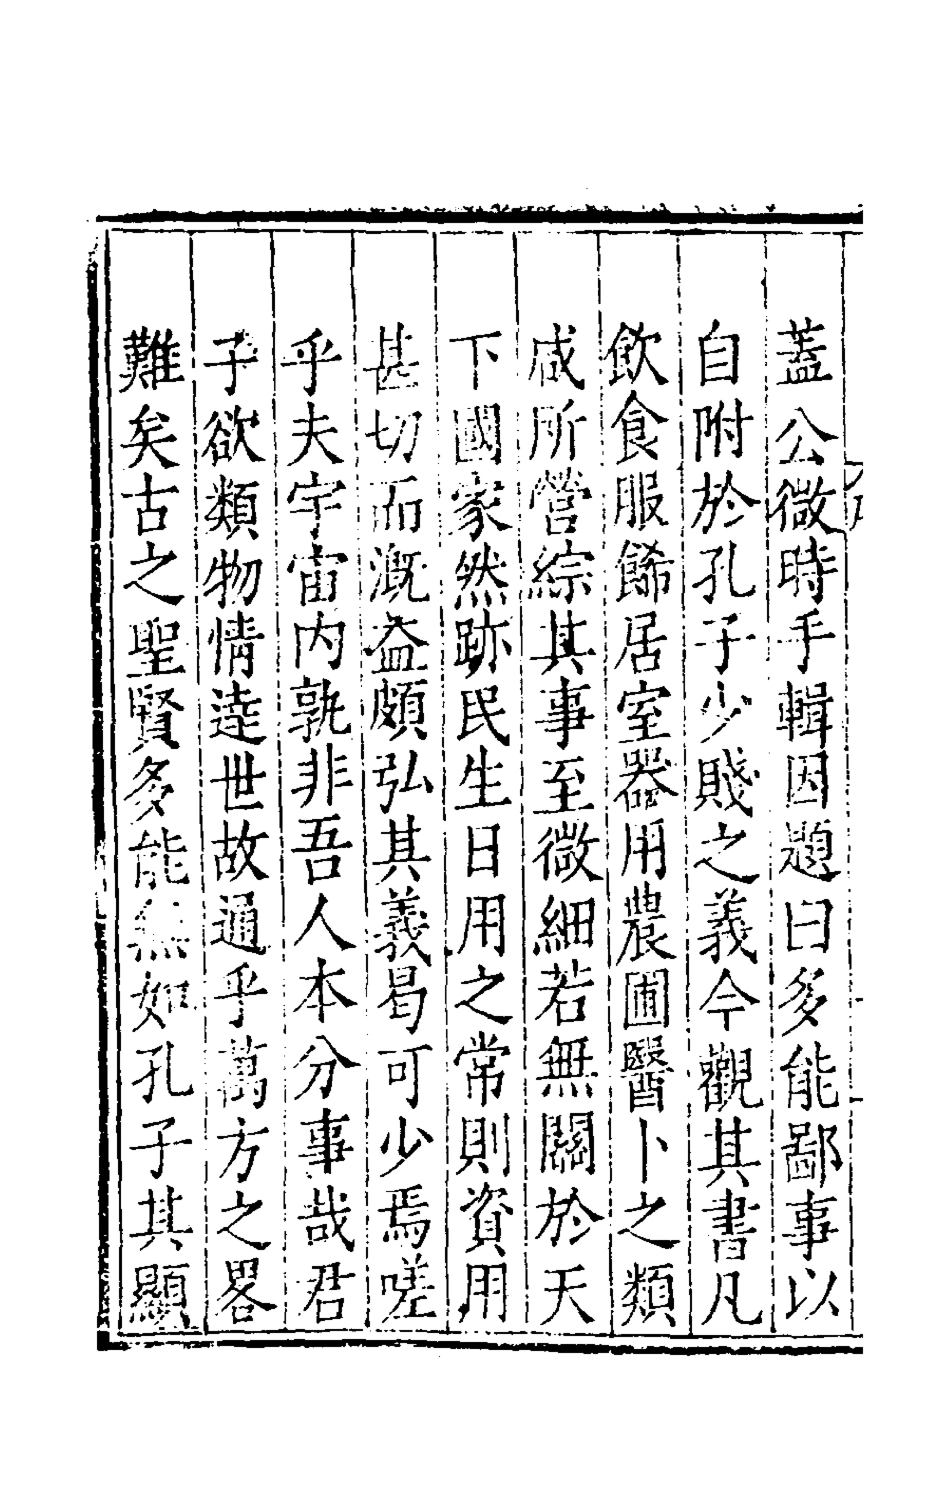 蓋公微時手輯因題曰多能鄙事以
自附於孔子少賤之義今觀其書凡
飲食服餙居室器用農圃醫卜之類
咸所營綜其事至微細若無關於天
下國家然跡民生日用之常則資用
甚切而溉益頗弘其義曷可少焉嗟
乎夫宇宙内孰非吾人本分事哉君
子欲類物情逹世故通乎萬方之畧
難矣古之聖賢多能無如孔子其顯